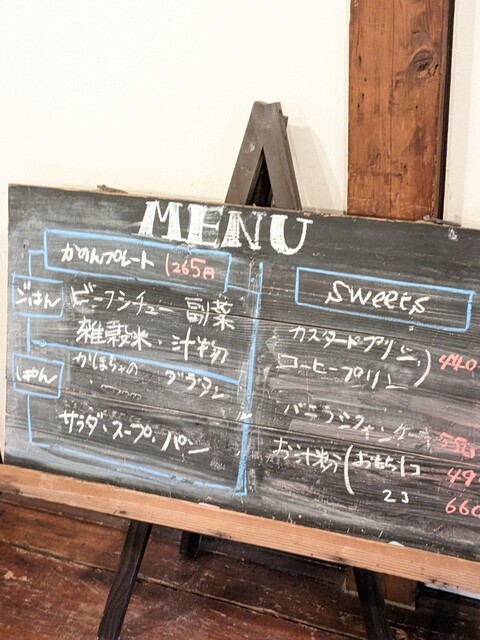 MENU
かのんプレート 1265円
ごはん
ビーフシチュー 副菜
雑穀米・汁物
ぱん
かぼちゃの グラタン
サラダ、スープ、パン
sweets
カスタードプリン
コーヒープリン 440
バニラシフォンケーキ 550
お汁粉(おもち1コ 49
2コ 660